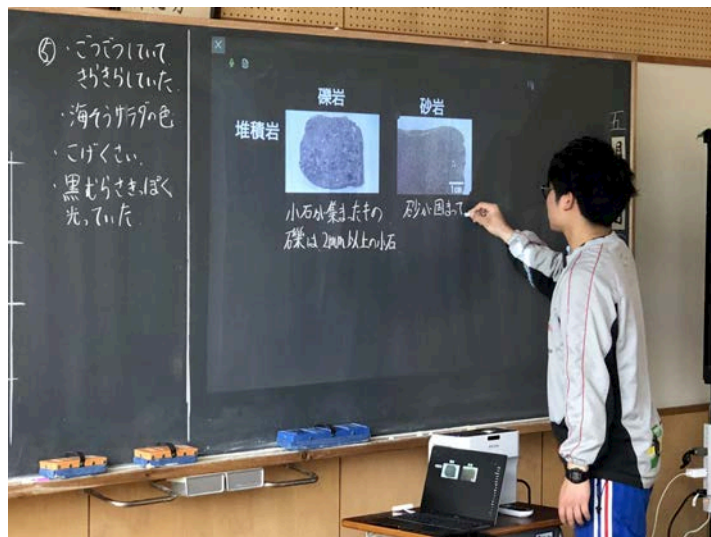 ⑤・ごつごつしていて
さらさらしていた
・海そうサラダの色
・こげくさい
・黒むらさきっぽく
光っていた
礫岩
砂岩
堆積岩
1cm
小石が集まったもの
礫は2mm以上の小石
砂が固まって